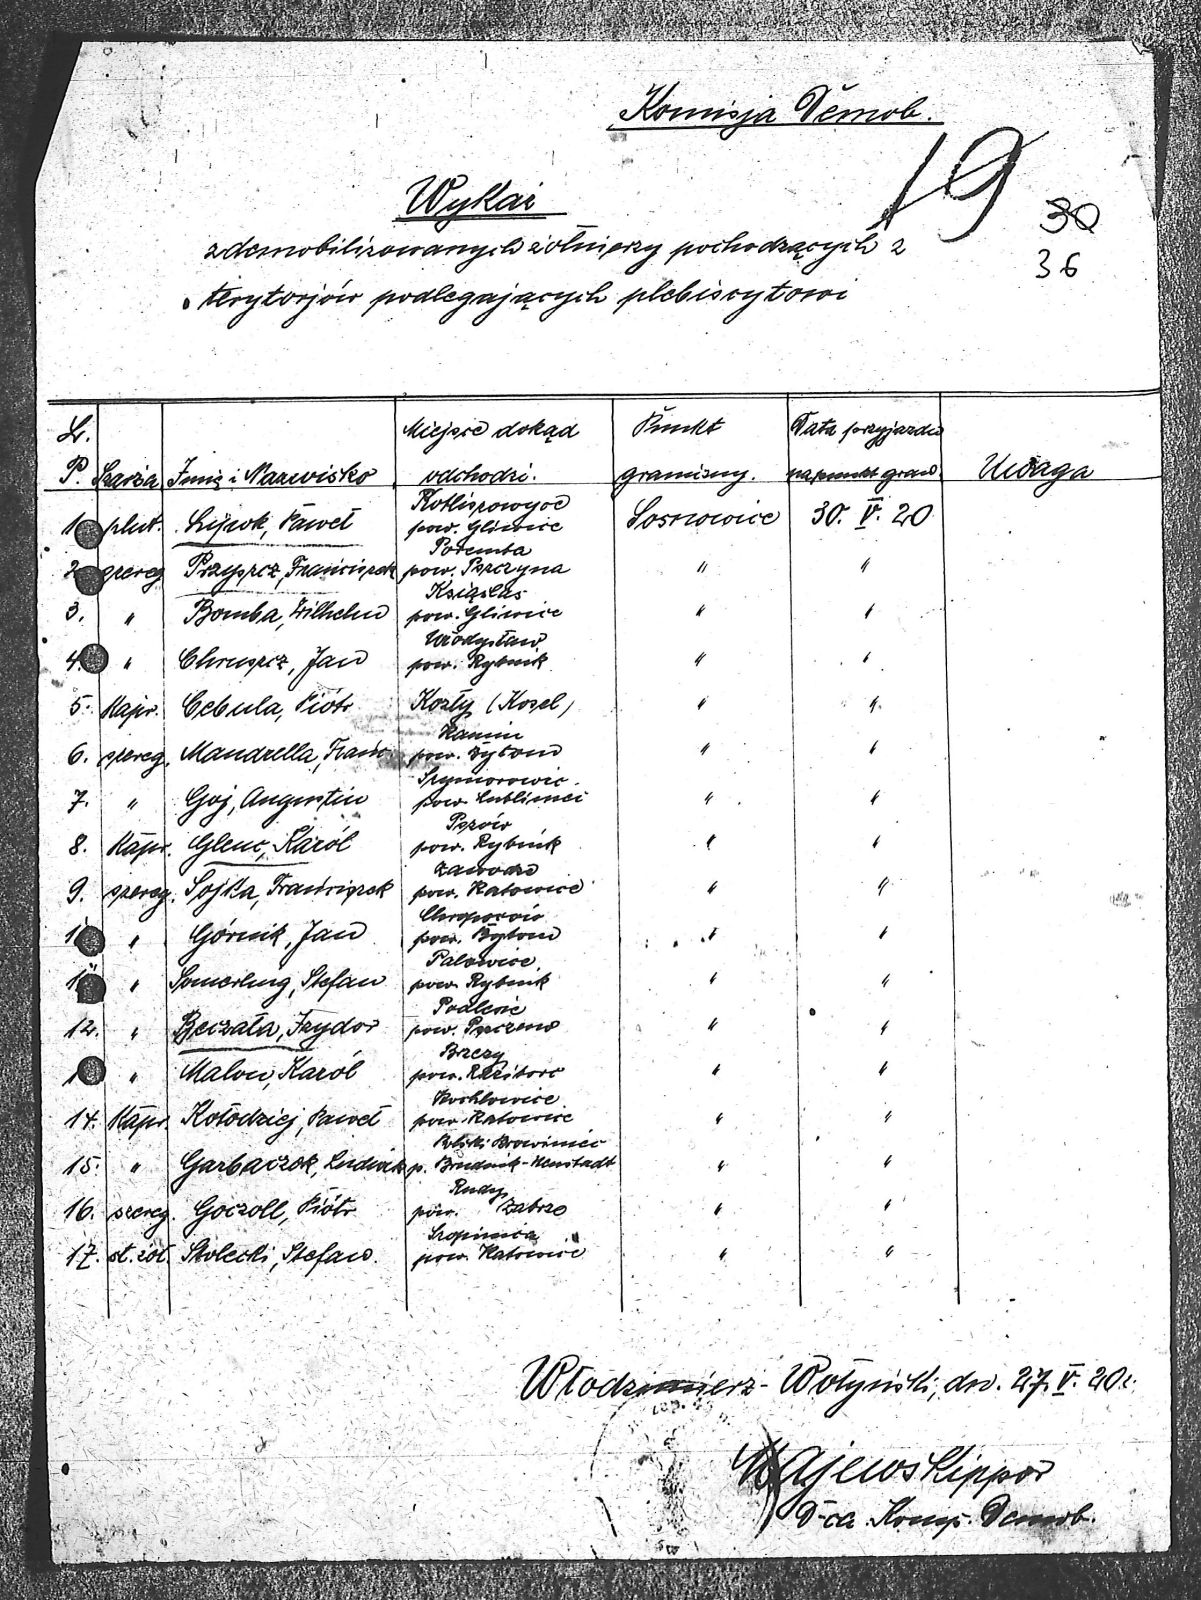 Komisja Demob.
19
30
36
Wykaz
zdemobilizowanych żołnierzy pochodzących z
terytorjów podlegających plebiscytowi
L. P. Szarża Imię i Nazwisko Miejsce dokąd odchodzi. Punkt graniczny. Data przyjazdu na punkt gran. Uwaga
1 plut. Paweł pow. Gliwice Sosnowice 30. V. 20
2 szereg Przyszcz, Franciszek Poremba pow. Pszczyna " "
3. " Bomba, Wilhelm pow. Gliwice " "
4. " Chruszcz, Jan pow. Rybnik " "
5. Kapr. Cebula, Piótr Kozły (Kosel) " "
6. szereg. Mandrella, Franc. Kamin pow. Bytom " "
7. " Goj, Augustin pow. Lubliniec " "
8. Kapr. Glenc, Karól Pszów pow. Rybnik " "
9. szereg. Sojka, Franciszek Zawodze pow. Katowice " "
1 " Górnik, Jan pow. Bytom " "
1 " Somerling, Stefan Palowice pow. Rybnik " "
12. " Beczała, Izydor Podlesie pow. " "
1 " Malon, Karól Brzezy pow. " "
14. Kapr. Kołodziej, Paweł Kochlowice pow. Katowice " "
15. " Garbaczok, Ludwik Polski p. Prudnik-Neustadt " "
16. szereg. Goczoll, Piótr Rudy pow. Zabrze " "
17. st. żoł. Stolecki, Stefan. pow. Katowice " "
Włodzimierz-Wołyński, dn. 27. V. 20 r.
Majewski ppor
D-ca Komp. Demob.